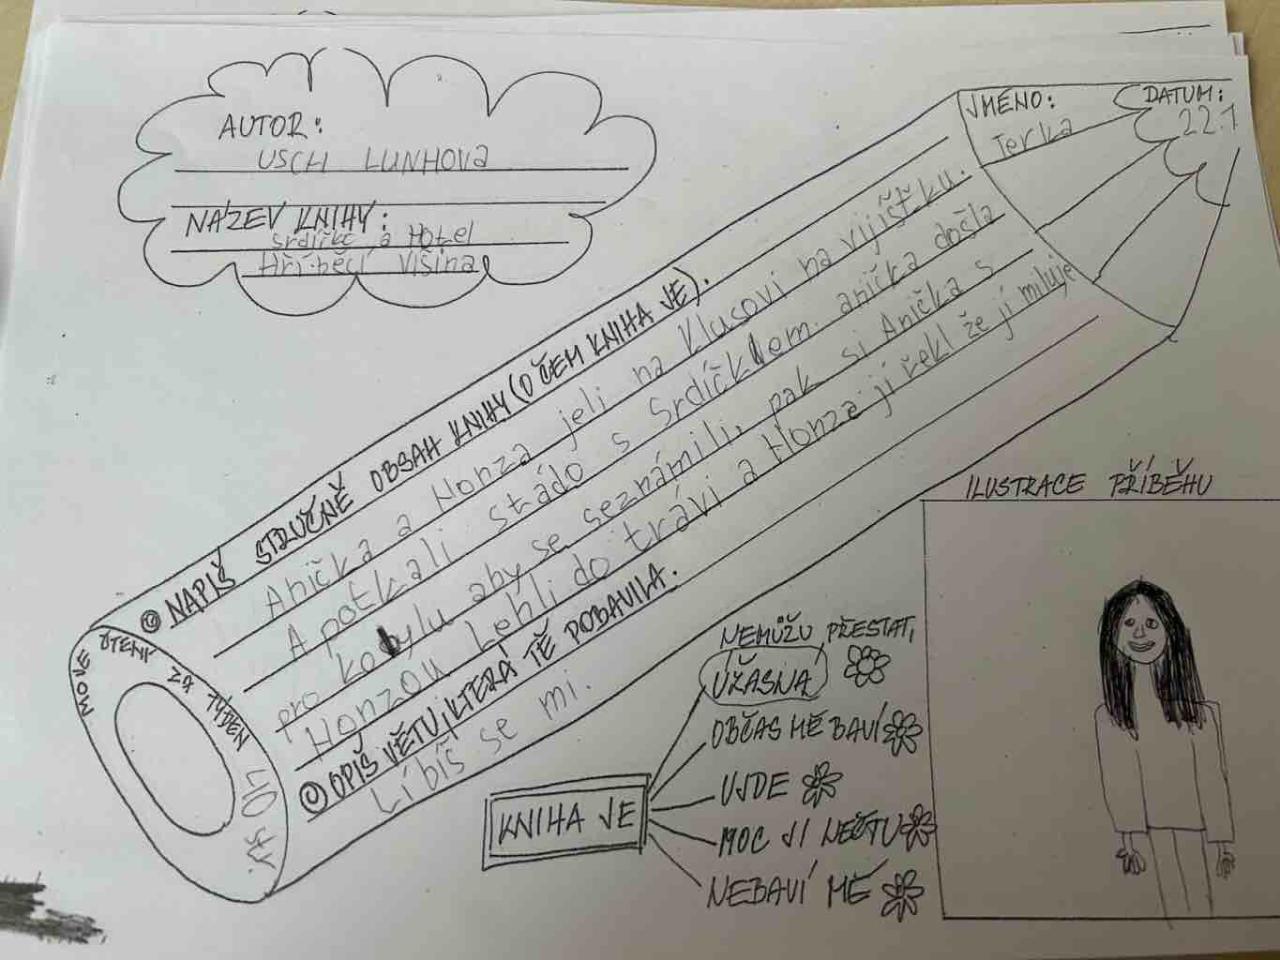 AUTOR:
USCH LUNHOVa
NÁZEV KNIHY:
Srdíčko a Hotel
Hříběcí Višina
JMÉNO:
Terka
DATUM:
22.1
NAPIŠ STRUČNĚ OBSAH KNIHY (O ČEM KNIHA JE).
Anička a Honza jeli na Klusovi na vijíšťku.
A potkali stádo s Srdíčkem anička došla
pro kobylu aby se seznámili, pak si Anička s
Honzou Lehli do trávi a Honza jí řekl že jí miluje
OPIŠ VĚTU, KTERÁ TĚ POBAVILA.
Líbíš se mi.
MOJE ČTENÍ ZA TÝDEN
ILUSTRACE PŘÍBĚHU
KNIHA JE
NEMŮŽU PŘESTAT,
ÚŽASNÁ
OBČAS MĚ BAVÍ
UJDE
MOC JI NEČTU
NEBAVÍ MĚ